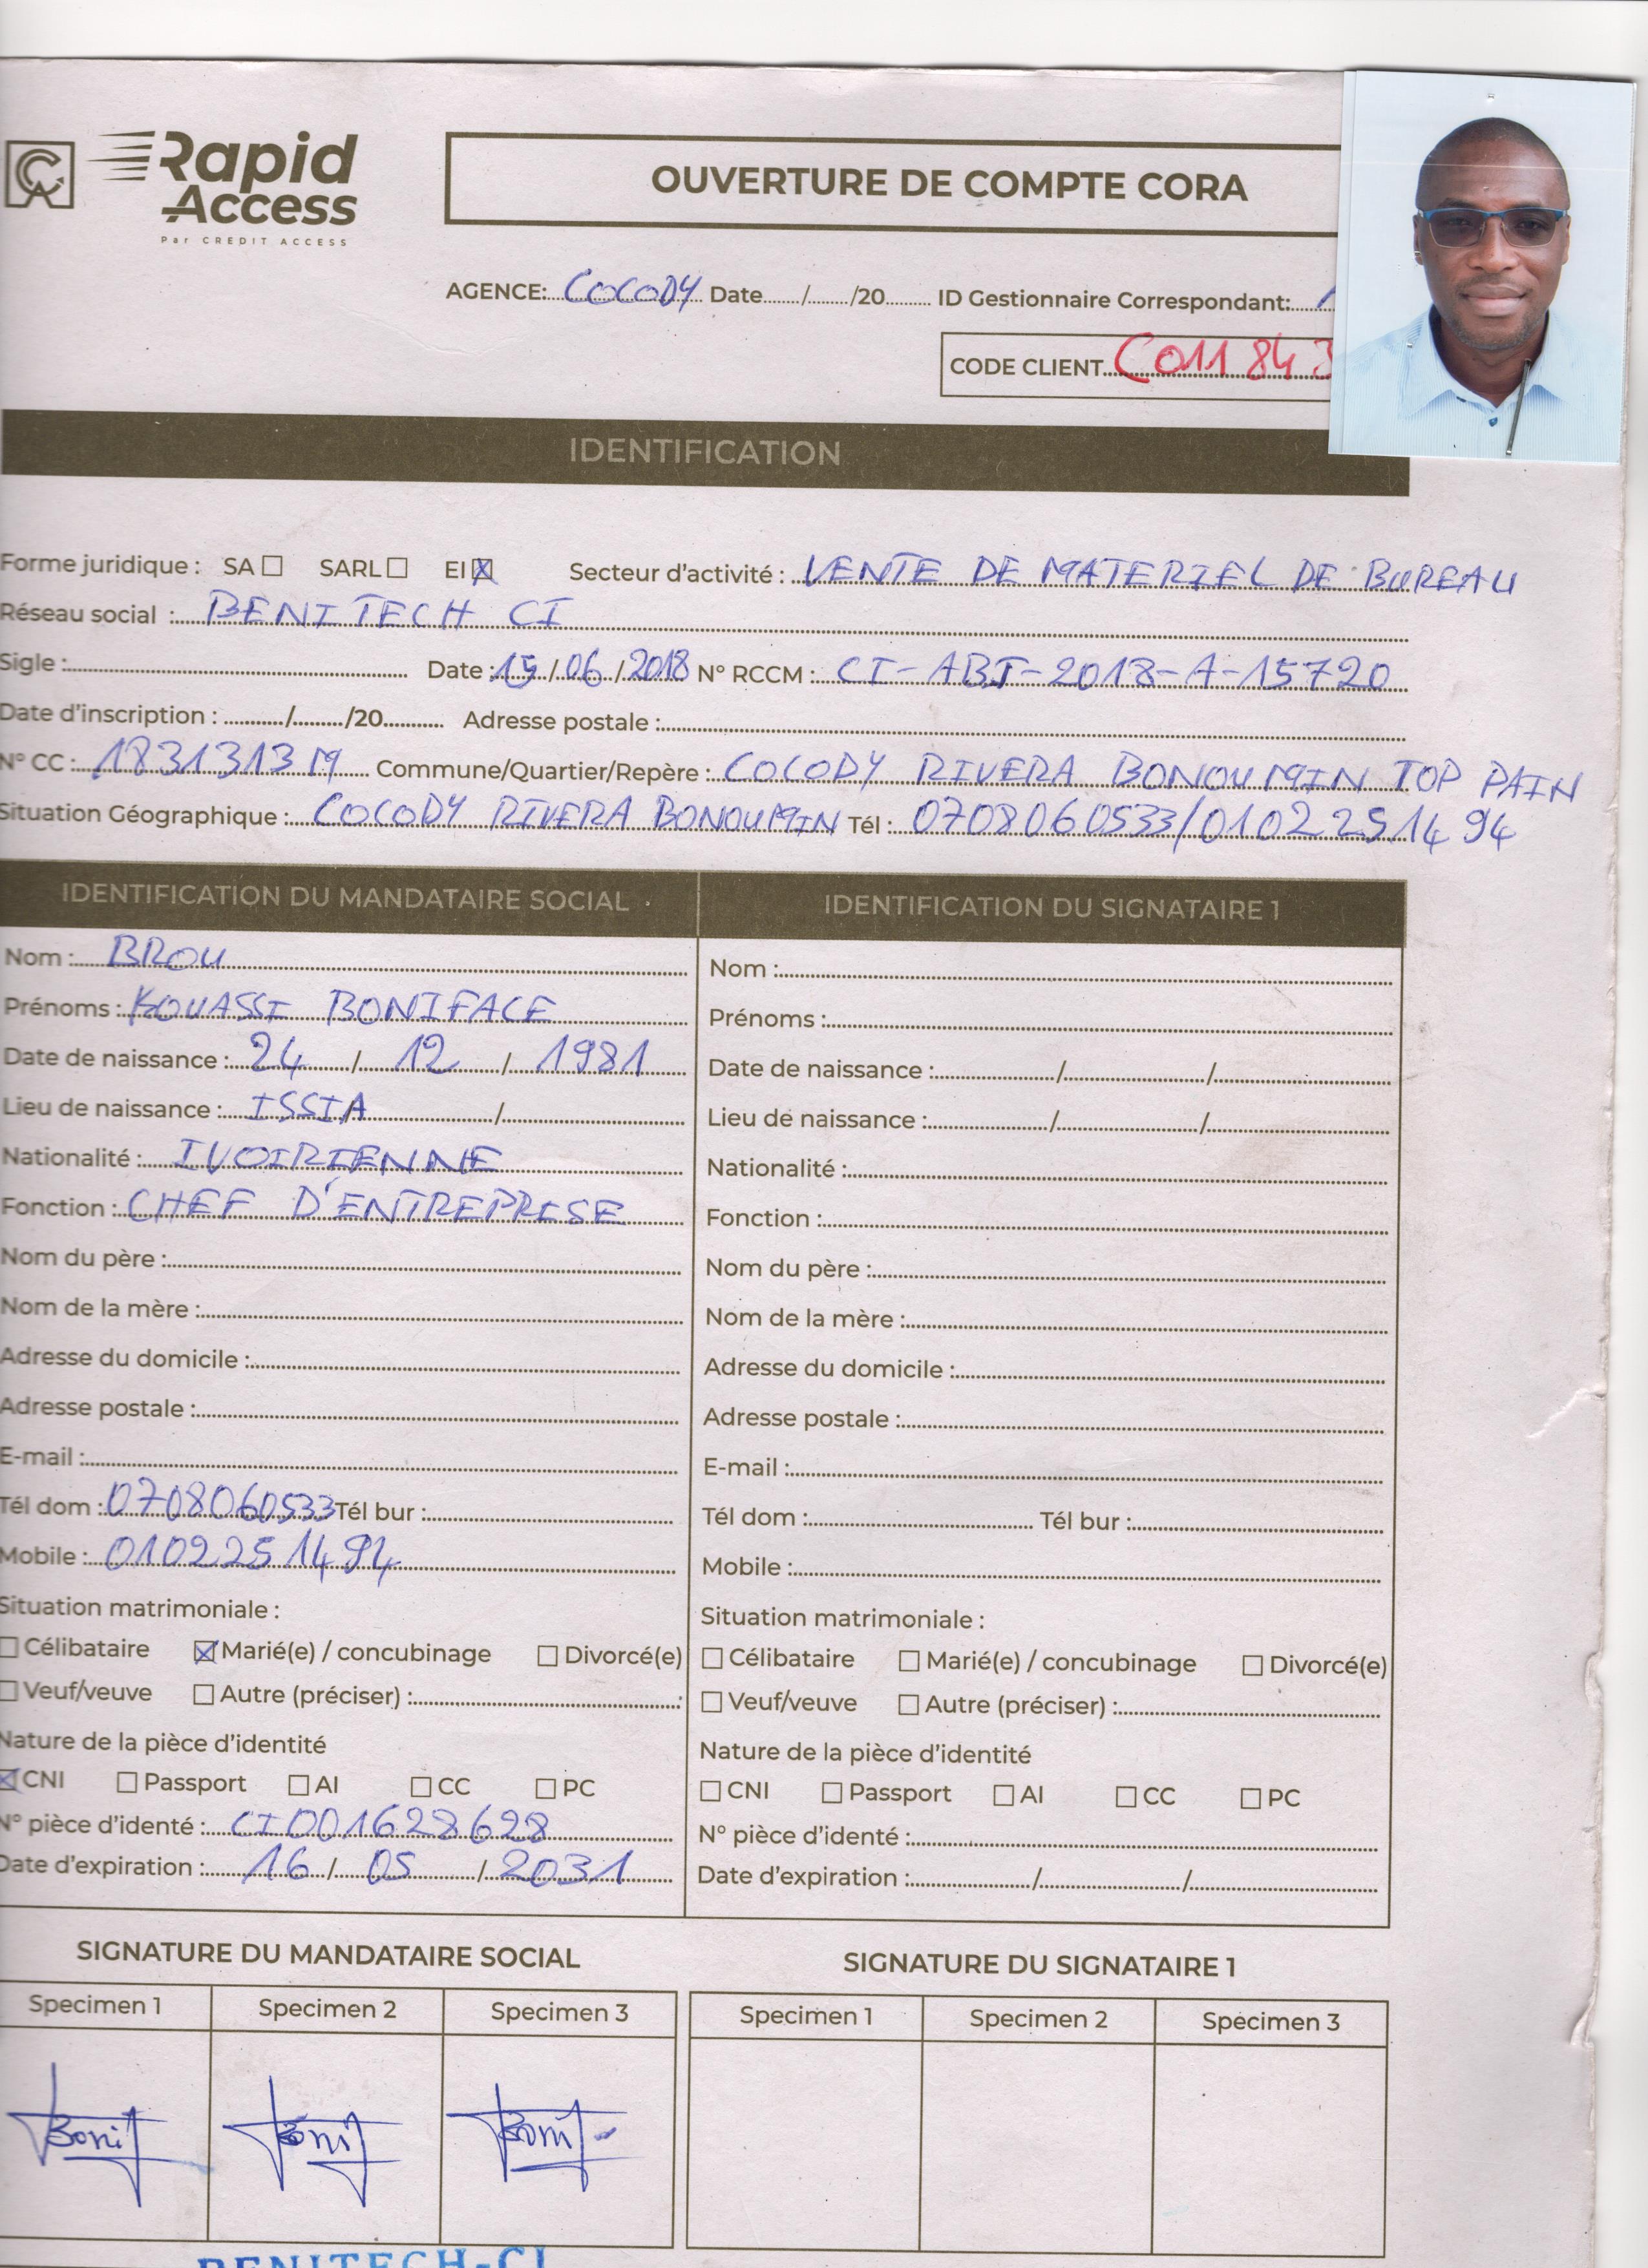 Rapid
Access
Par CREDIT ACCESS
OUVERTURE DE COMPTE CORA
AGENCE: COCODY Date....../....../20...... ID Gestionnaire Correspondant:
CODE CLIENT CO11843
IDENTIFICATION
Forme juridique : SA ☐ SARL ☐ EI ☒ Secteur d'activité : VENTE DE MATERIEL DE BUREAU
Réseau social : BENITECH CI
Sigle : Date : 15/06/2018 N° RCCM : CI-ABJ-2018-A-15720
Date d'inscription : ....../....../20...... Adresse postale :
N° CC : 1831313 M Commune/Quartier/Repère : COCODY RIVERA BONOUMIN TOP PAIN
Situation Géographique : COCODY RIVERA BONOUMIN Tél : 0708060533/0102251494
IDENTIFICATION DU MANDATAIRE SOCIAL
Nom : BROU
Prénoms : KOUASSI BONIFACE
Date de naissance : 24 / 12 / 1981
Lieu de naissance : ISSIA /
Nationalité : IVOIRIENNE
Fonction : CHEF D'ENTREPRISE
Nom du père :
Nom de la mère :
Adresse du domicile :
Adresse postale :
E-mail :
Tél dom : 0708060533 Tél bur :
Mobile : 0102251494
Situation matrimoniale :
☐ Célibataire ☒ Marié(e) / concubinage ☐ Divorcé(e)
☐ Veuf/veuve ☐ Autre (préciser) :
Nature de la pièce d'identité
☒ CNI ☐ Passport ☐ AI ☐ CC ☐ PC
N° pièce d'identé : CI001628628
Date d'expiration : 16 / 05 / 2031
IDENTIFICATION DU SIGNATAIRE 1
Nom :
Prénoms :
Date de naissance : / /
Lieu de naissance : / /
Nationalité :
Fonction :
Nom du père :
Nom de la mère :
Adresse du domicile :
Adresse postale :
E-mail :
Tél dom : Tél bur :
Mobile :
Situation matrimoniale :
☐ Célibataire ☐ Marié(e) / concubinage ☐ Divorcé(e)
☐ Veuf/veuve ☐ Autre (préciser) :
Nature de la pièce d'identité
☐ CNI ☐ Passport ☐ AI ☐ CC ☐ PC
N° pièce d'identé :
Date d'expiration : / /
SIGNATURE DU MANDATAIRE SOCIAL
Specimen 1 Specimen 2 Specimen 3
Boni Boni Boni
SIGNATURE DU SIGNATAIRE 1
Specimen 1 Specimen 2 Specimen 3
BENITECH-CI